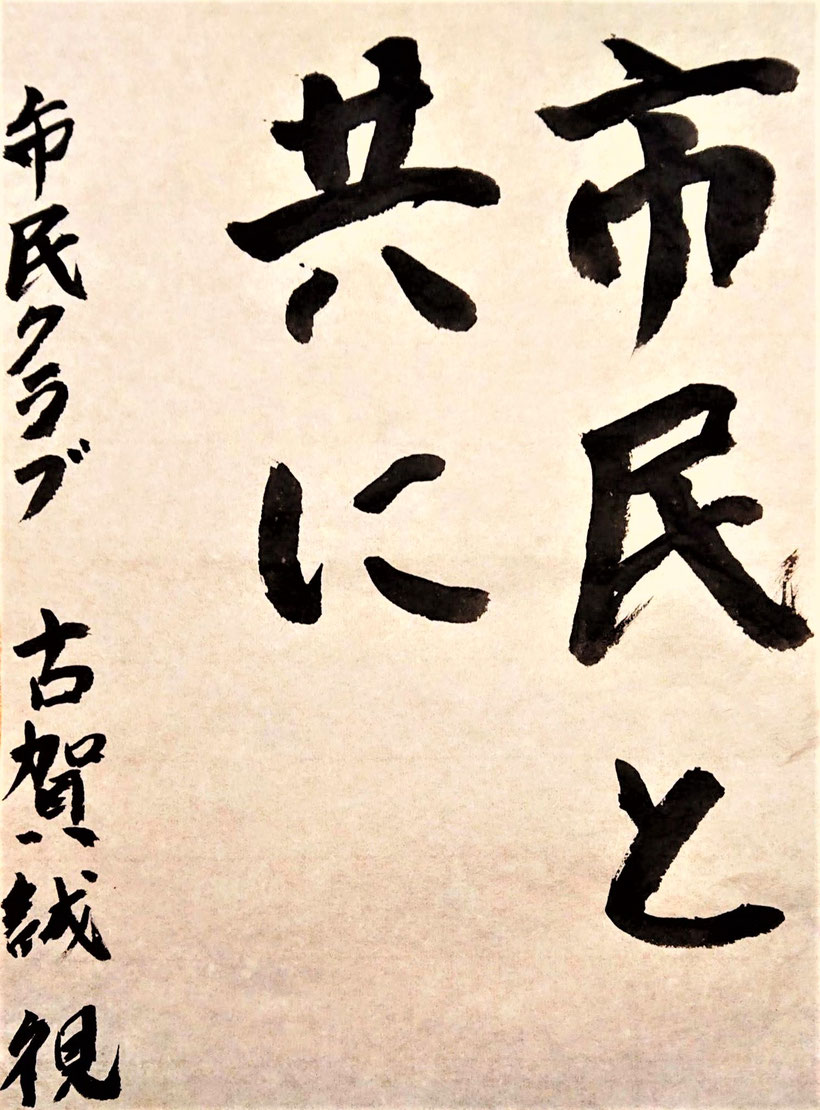 市民と
共に
市民クラブ 古賀誠視